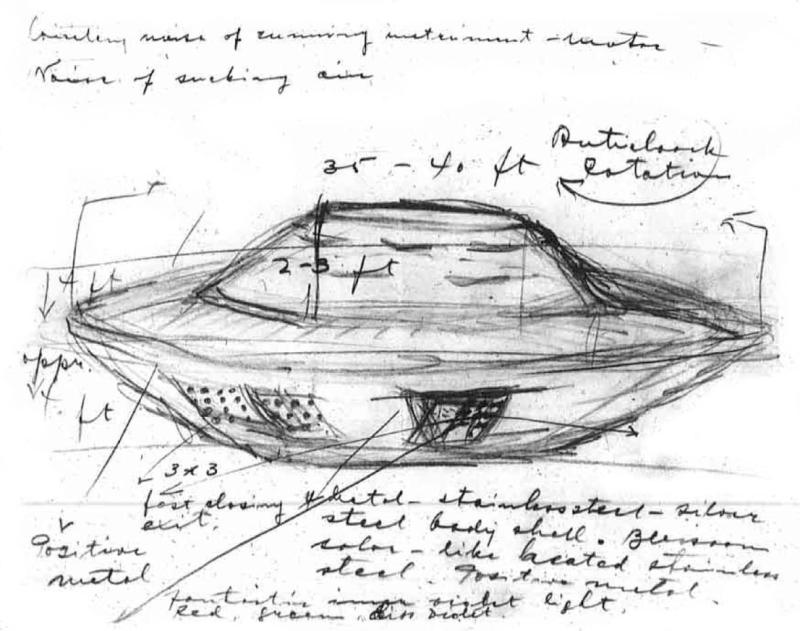 noise of running instrument - motor -
Noise of sucking air
Anticlock
35 - 40 ft
Rotation
2-3 ft
4 ft
appr.
4 ft
3 x 3
fast closing metal - stainless steel - silver
exit.
steel body shell.
Positive
color - like heated stainless
metal
steel. Positive metal.
fantastic inner violet light.
red, green, violet.